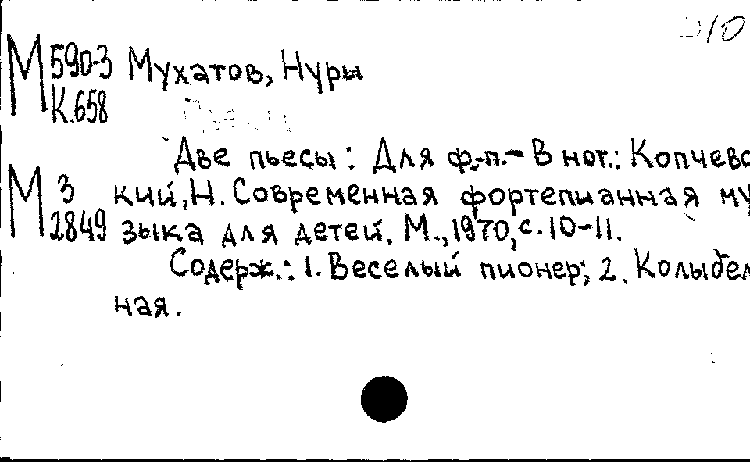 М 590-3 Мухатов, Нуры
К.658
Две пьесы: Для ф.-п. - В нот.: Копчевс
М 3 кий, Н. Современная фортепианная му
2849 зыка для детей. М., 1970, с. 10-11.
Содерж.: 1. Веселый пионер; 2. Колыбел
ная.